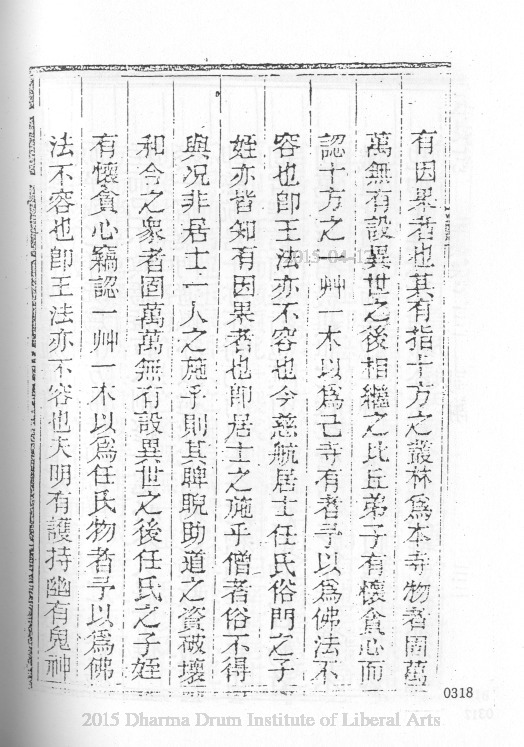 有因果者也其有指十方之叢林爲本寺物者固萬
萬無有設異世之後相繼之比丘弟子有懷貪心而
認十方之一艸一木以爲己寺有者予以爲佛法不
容也卽王法亦不容也今慈航居士任氏俗門之子
姪亦皆知有因果者也卽居士之施乎僧者俗不得
與况非居士一人之施乎則其睥睨助道之資破壞
和合之衆者固萬萬無有設異世之後任氏之子姪
有懷貪心竊認一艸一木以爲任氏物者予以爲佛
法不容也卽王法亦不容也夫明有護持幽有鬼神
0318
2015 Dharma Drum Institute of Liberal Arts